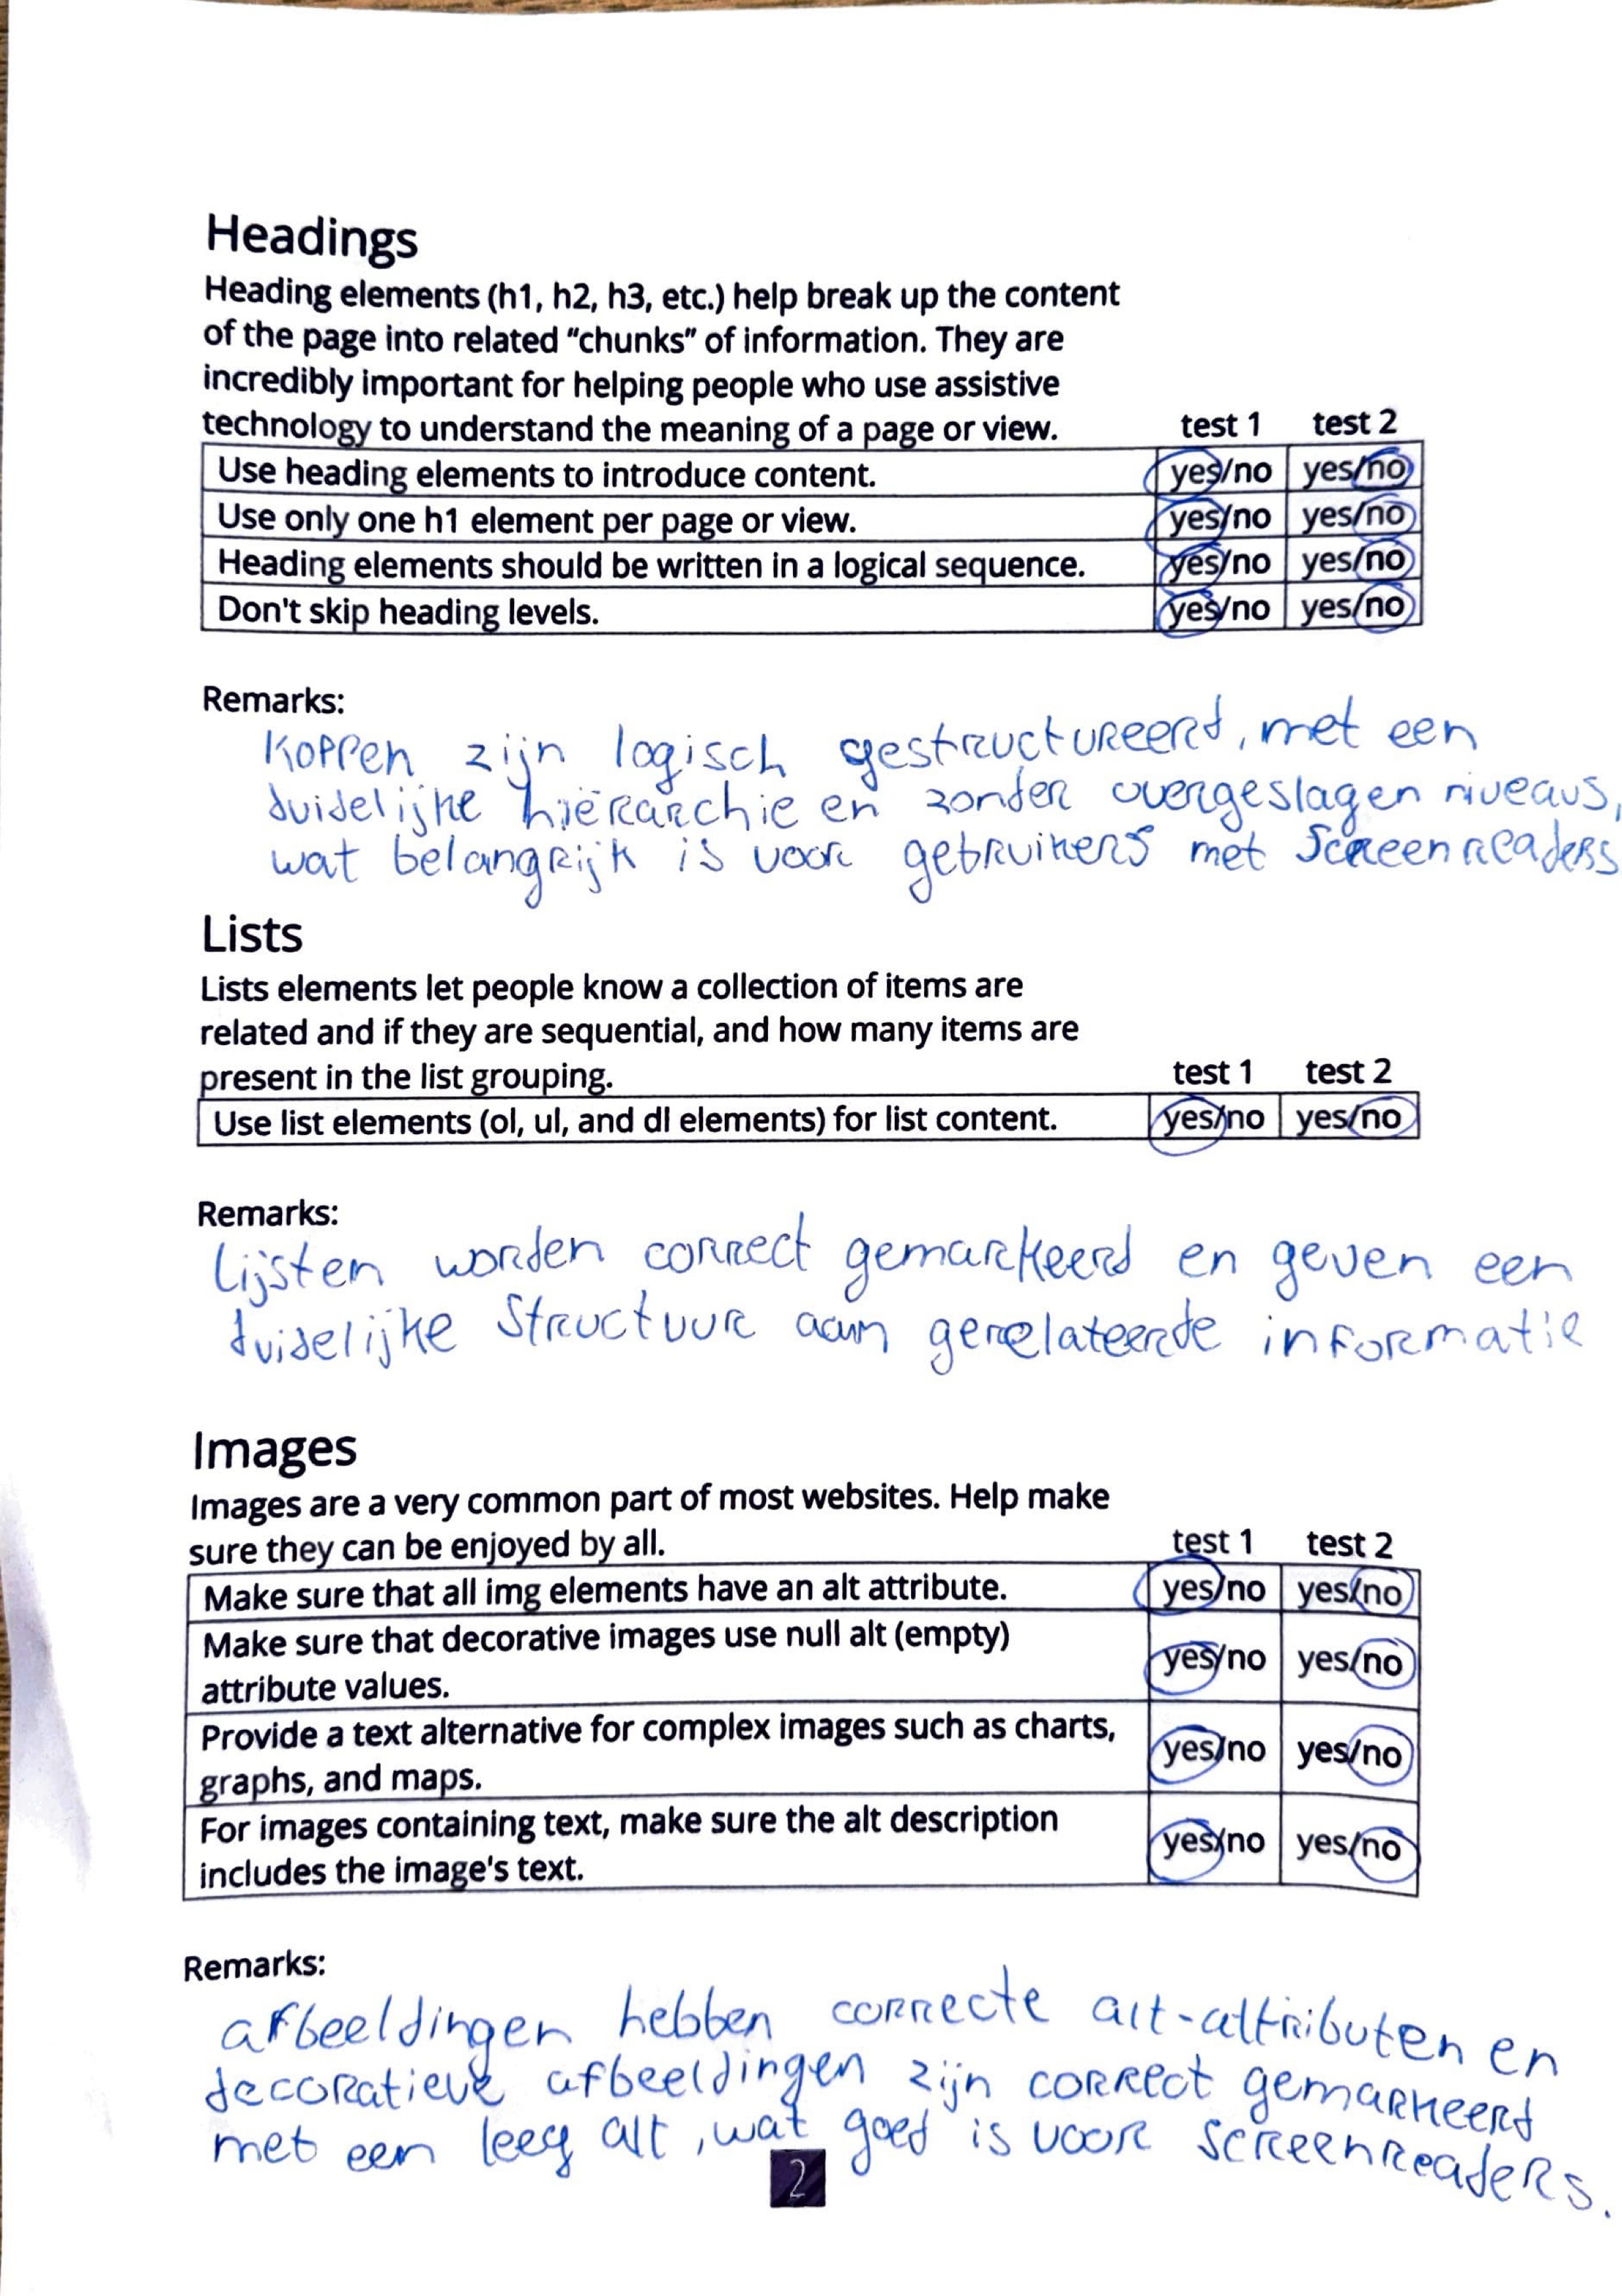 Headings
Heading elements (h1, h2, h3, etc.) help break up the content
of the page into related “chunks” of information. They are
incredibly important for helping people who use assistive
technology to understand the meaning of a page or view. test 1 test 2
Use heading elements to introduce content. yes/no yes/no
Use only one h1 element per page or view. yes/no yes/no
Heading elements should be written in a logical sequence. yes/no yes/no
Don't skip heading levels. yes/no yes/no
Remarks:
Koppen zijn logisch gestructureerd, met een
duidelijke hiërarchie en zonder overgeslagen niveaus,
wat belangrijk is voor gebruikers met Screenreaders
Lists
Lists elements let people know a collection of items are
related and if they are sequential, and how many items are
present in the list grouping. test 1 test 2
Use list elements (ol, ul, and dl elements) for list content. yes/no yes/no
Remarks:
Lijsten worden correct gemarkeerd en geven een
duidelijke Structuur aan gerelateerde informatie
Images
Images are a very common part of most websites. Help make
sure they can be enjoyed by all. test 1 test 2
Make sure that all img elements have an alt attribute. yes/no yes/no
Make sure that decorative images use null alt (empty)
attribute values. yes/no yes/no
Provide a text alternative for complex images such as charts,
graphs, and maps. yes/no yes/no
For images containing text, make sure the alt description
includes the image's text. yes/no yes/no
Remarks:
afbeeldingen hebben correcte alt-attributen en
decoratieve afbeeldingen zijn correct gemarkeerd
met een leeg alt, wat goed is voor screenreaders.
2